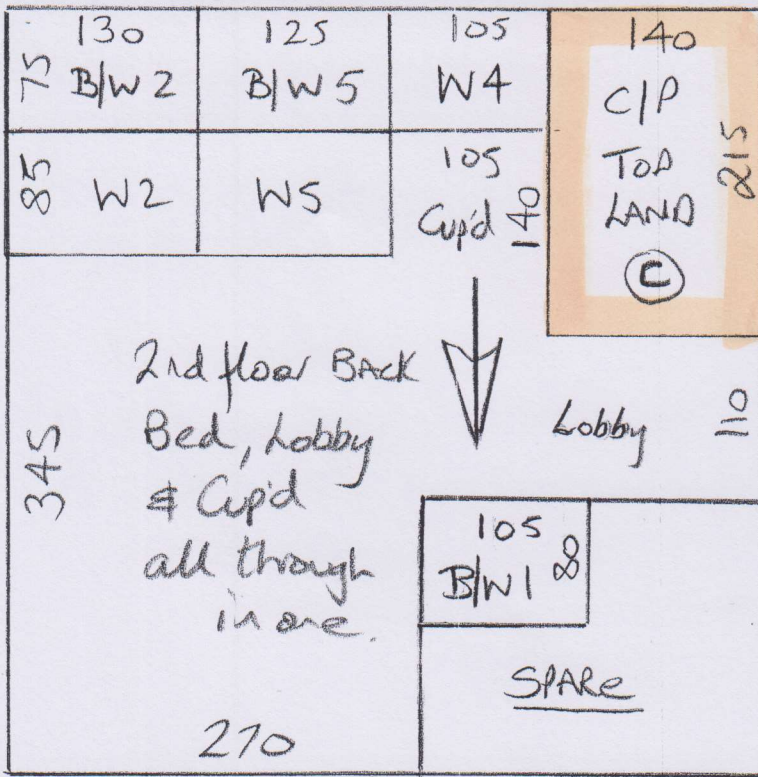 130
75 B/W 2
125
B/W 5
105
W4
140
C/P
TOP
LAND
C
215
85 W2
W5
105
Cup'd 140
2nd floor BACK
Bed, Lobby
& Cup'd
all through
in one.
345
Lobby 110
105
B/W1 80
SPARE
270